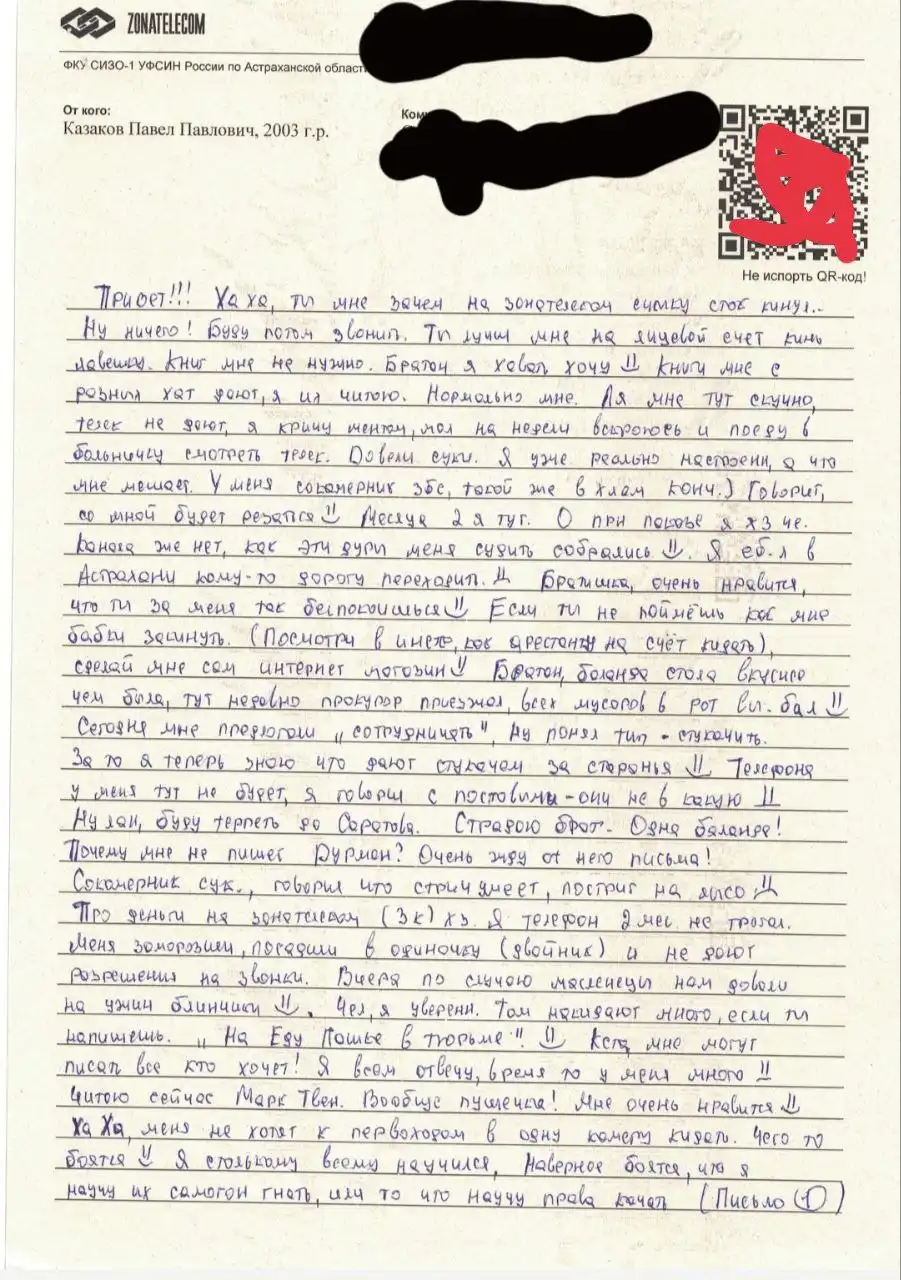 ZONATELECOM
ФКУ СИЗО-1 УФСИН России по Астраханской област
От кого:
Казаков Павел Павлович, 2003 г.р.
Ком
Не испорть QR-код!
Привет!!! Ха ха, ты мне зачем на зонателеком симку сток кинул..
Ну ничего! Буду потом звонить. Ты лучш мне на лицевой счет кинь
лавешку. Книг мне не нужно. Братан я хават хочу Книги мне с
разных хат дают, я их читаю. Нормально мне. Ля мне тут скучно,
телек не дают, я кричу ментам, мол на недели вскроюсь и поеду в
больничку смотреть телек. Довели суки. Я уже реально настроенн, а что
мне мешает. У меня сокамерник збс, такой же в хлам конч.) Говорит,
со мной будет резатся Месяца 2 я тут. О при паказе я хз че.
Канала же нет, как эти дури меня судить собрались. Я еб-л в
Астрахани кому-то дорогу переходить. Братишка, очень нравится,
что ты за меня так беспокоишься Если ты не поймёшь как мне
бабки закинуть. (Посмотри в инете, как арестанту на счёт кидать),
сделай мне сам интернет магазин Братан, баланда стала вкуснее
чем была, тут недавно прокурор приезжал, всех мусоров в рот вы-бал
Сегодня мне предлогали „сотрудничать", Ну понял тип - стукачить.
За то я теперь знаю что дают стукачем за старанья Телефона
у меня тут не будет, я говорил с постовыми - они не в какую
Ну лан, буду терпеть до Саратова. Страдаю брат. Одна баланда!
Почему мне не пишет Дурман? Очень жду от него письма!
Сокамерник сук., говорил что стрич умеет, постриг на лысо
Про деньги на зонателеком (3к) хз. Я телефон 2 мес. не трогал.
Меня заморозили, посадили в одиночку (двойник) и не дают
разрешения на звонки. Вчера по случаю масленецы нам давали
на ужин блинчики. Чел, я уверенн. Там накидают много, если ты
напишешь. „На Еду Пашке в тюрьме" Кста, мне могут
писать все кто хочет! Я всем отвечу, время то у меня много
Читаю сейчас Марк Твен. Вообще пушечка! Мне очень нравится
Ха Ха, меня не хотят к первоходам в одну камеру кидать. Чего то
боятся Я столькому всему научился, Наверное боятся, что я
научу их самогон гнать, или то что научу права качать (Письмо 1)